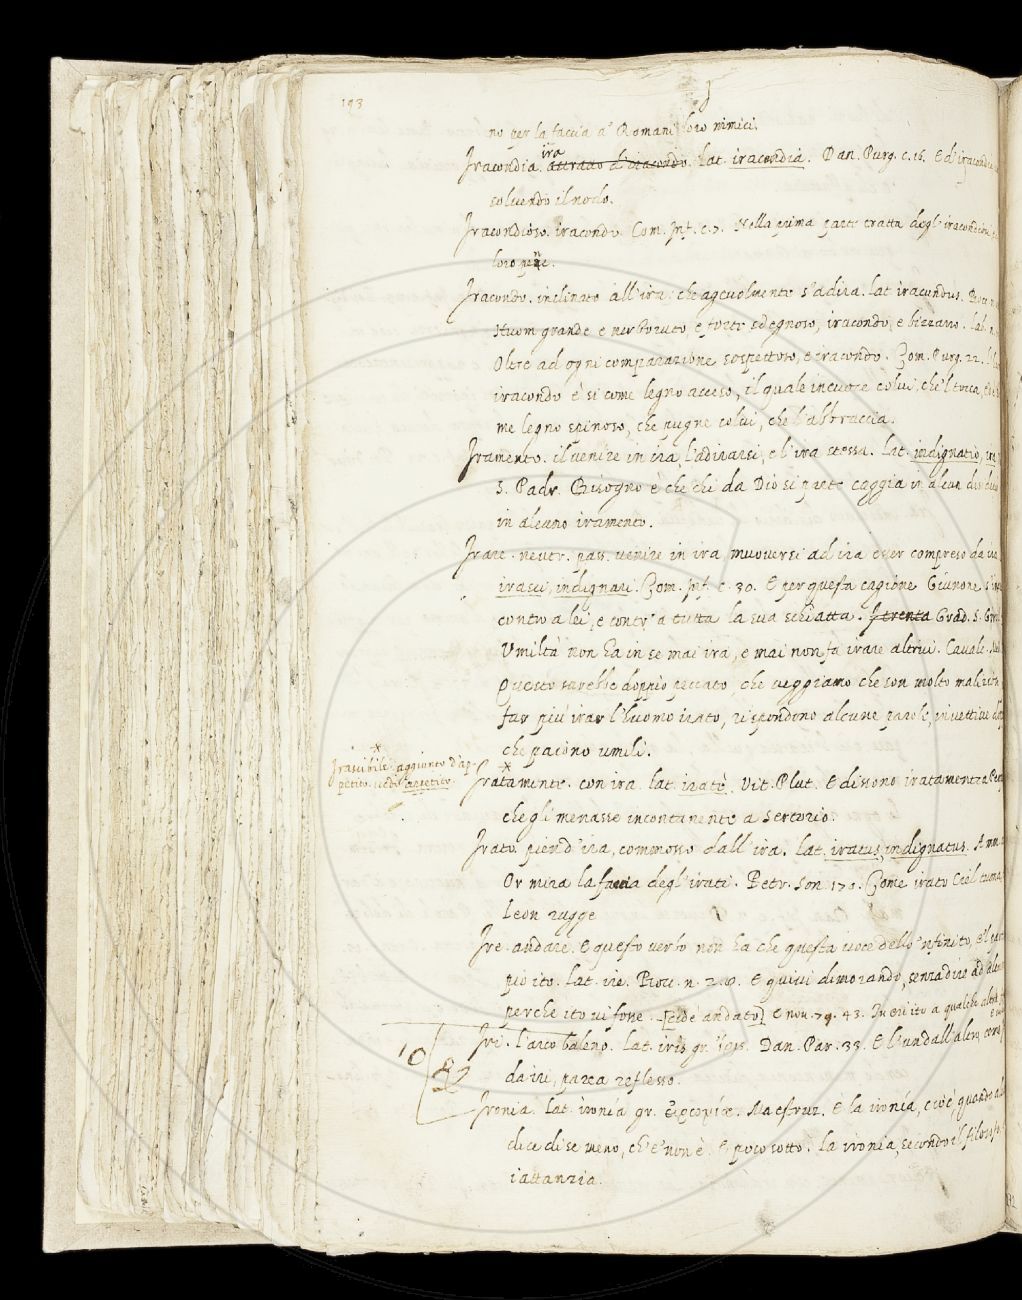 193
J
no per la faccia a' Romani loro nimici.
Iracondia. ira attratto d'iracondo. Lat. iracondia. Dan. Purg. c. 16. E d'iracondia
soluendo il nodo.
Iracondioso. iracondo. Com. Inf. c. 7. Nella prima parte tratta degl'iracondiosi
loro pene.
Iracondo. inclinato all'ira: che ageuolmente s'adira. Lat. iracundus. Bocc. n.
Huom grande e nerboruto, e forte sdegnoso, iracondo, e bizzarro. Lab. n.
Oltre ad ogni comparazione sospettoso, e iracondo. Com. Purg. 22.
iracondo è si come legno acceso, il quale incuoce colui, che'l tocca,
me legno spinoso, che pugne colui, che l'abbraccia.
Iramento. il venire in ira, l'adirarsi, e l'ira stessa. Lat. indignatio, ira
S. Padr. Bisogno è che chi da Dio si parte caggia in alcun
in alcuno iramento.
Irare. neutr. pass. venire in ira muouersi ad ira esser compreso da ira
irasci, indignari. Com. Inf. c. 30. E per questa cagione Giunone
contro a lei, e contr'a tutta la sua schiatta. Grad. S.
Vmiltà non ha in se mai ira, e mai non fa irare altrui. Caualc.
Questo sarebbe doppio peccato, che ueggiamo che son molto
far più irar l'huomo irato, rispondono alcune parole,
che paiono umili.
Irascibile. aggiunto d'ap-
petito. uedi appetito.
Iratamente. con ira. Lat. iratè. Vit. Plut. E dissono iratamente a
che gli menasse incontanente a Sertorio.
Irato. pien d'ira, commosso dall'ira. Lat. iratus, indignatus.
Or mira la faccia degl'irati. Petr. Son. 170. Come irato Ciel tuona,
Leon rugge
Ire. andare. E questo uerbo non ha che questa uoce dello 'nfinito, e'l
pio ito. Lat. ire. Bocc. n. E quiui dimorando, senza dire ad
perche ito ui fone. [cioè andato] E nou. 79. 43. In eri ito a qualche
Iri. l'arco baleno. Lat. iris gr. ἶρις. Dan. Par. 33. E l'un dall'altro, come
da iri, parea reflesso.
Ironia. Lat. ironia gr. εἰρωνεία. Maestruz. E la ironia, cioè, quando
dice di se meno, ch'e' non è. E poco sotto. La ironia, secondo il filosofo
iattanzia.